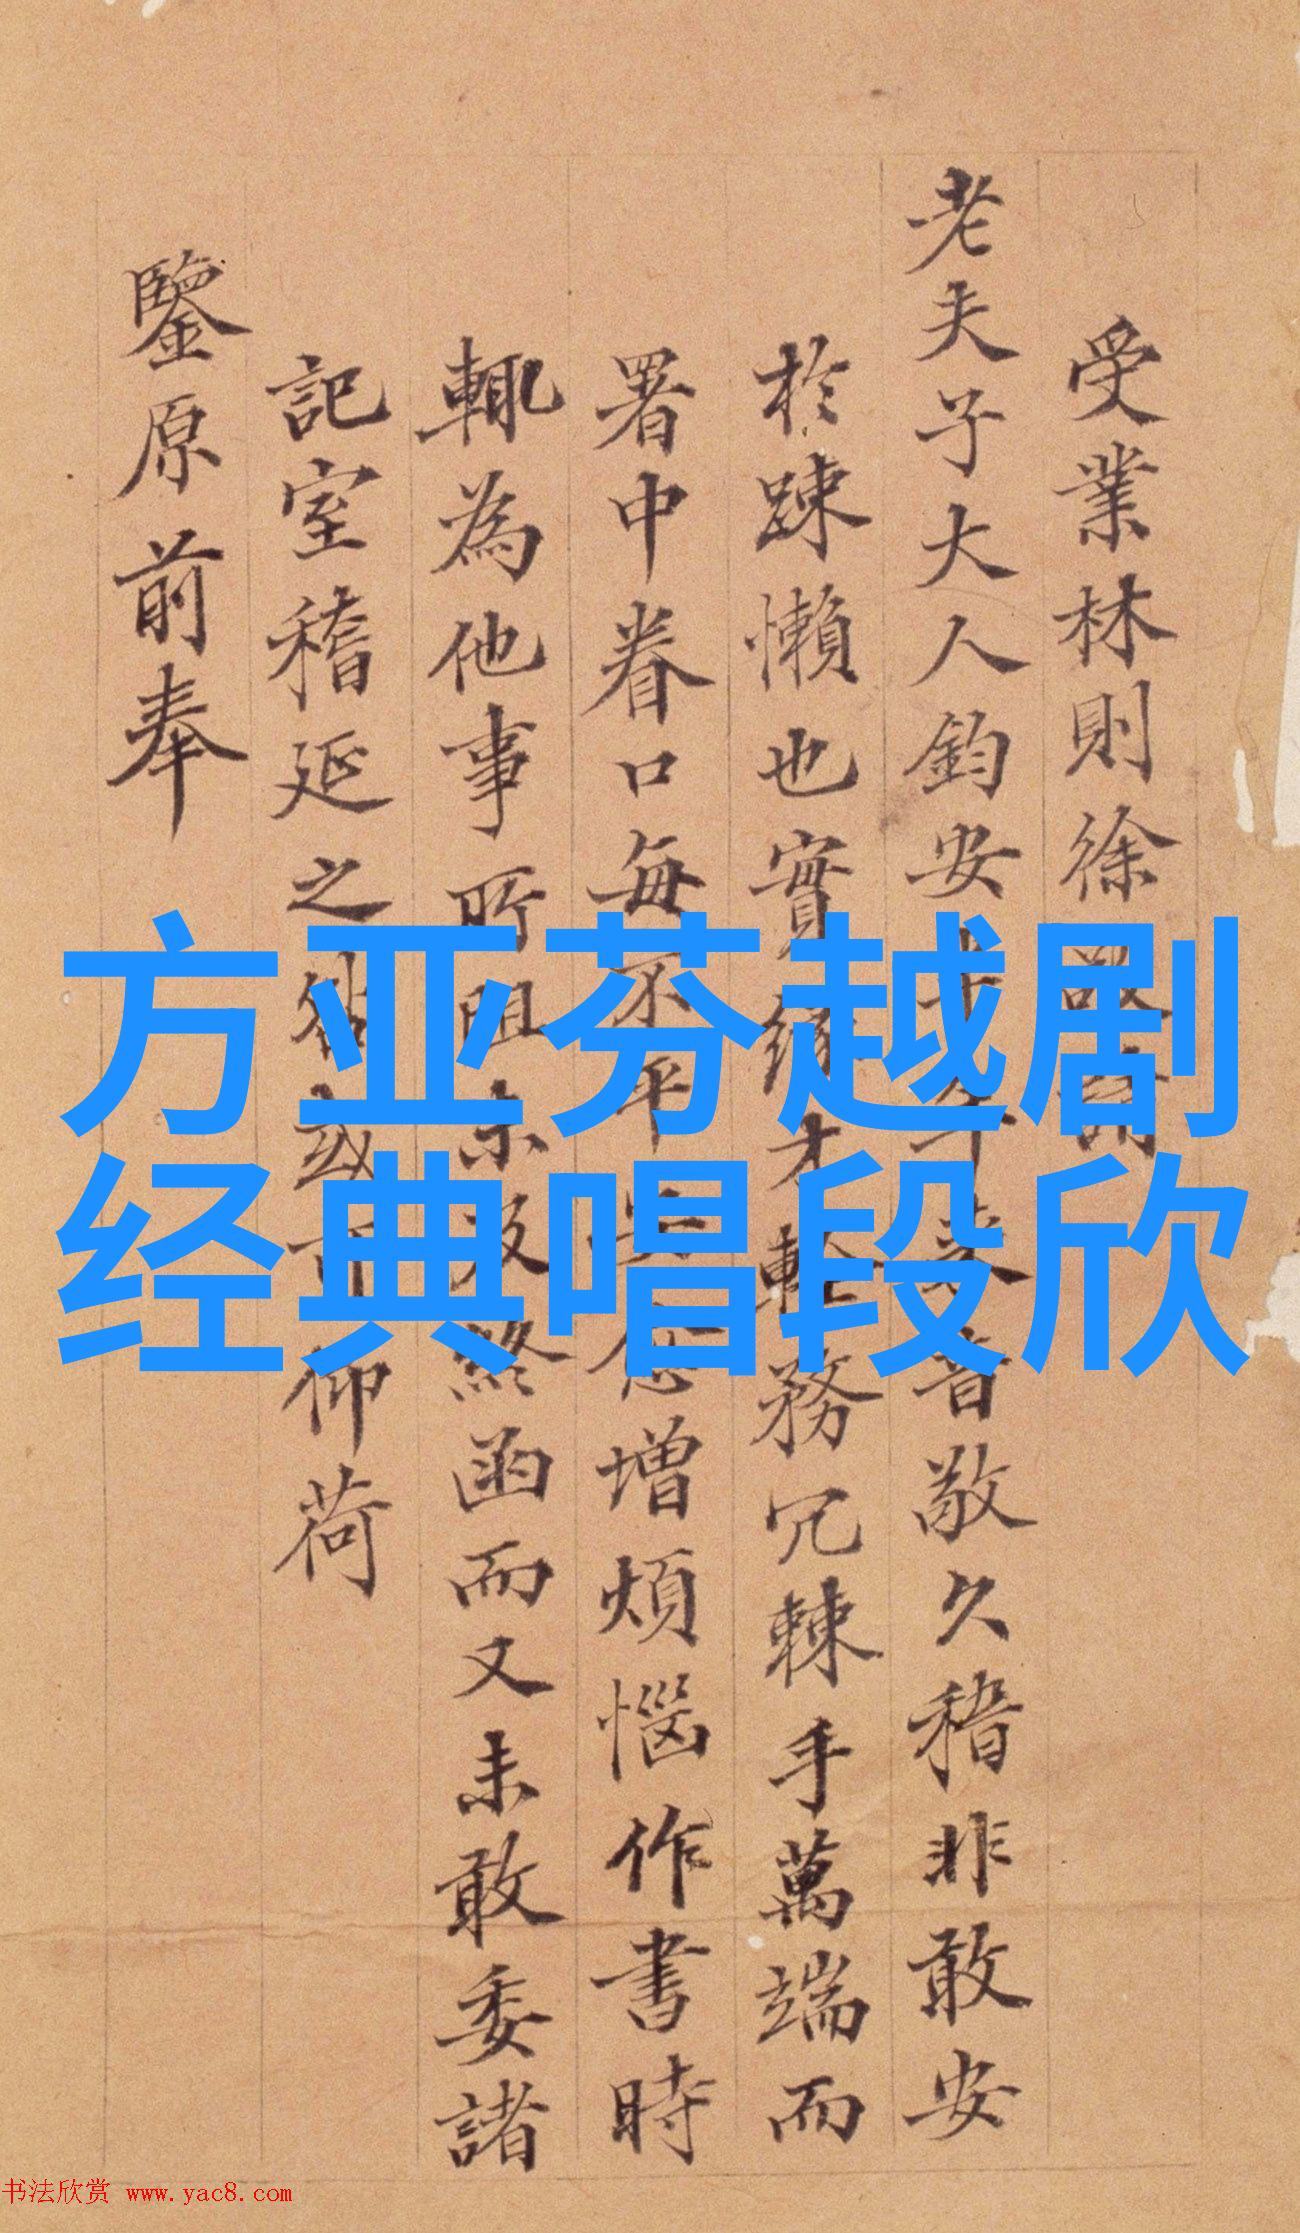 受業林則徐
老夫子大人鈞安
音敬久稽非敢安
於踈懶也實
務冗棘手萬端而
署中眷口每不
增煩惱作書時
輒為他事所阻
函而又未敢委諸
記室稽延之
仰荷
鑒原前奉
方亚芬越剧
经典唱段欣
书法欣赏 www.yac8.com